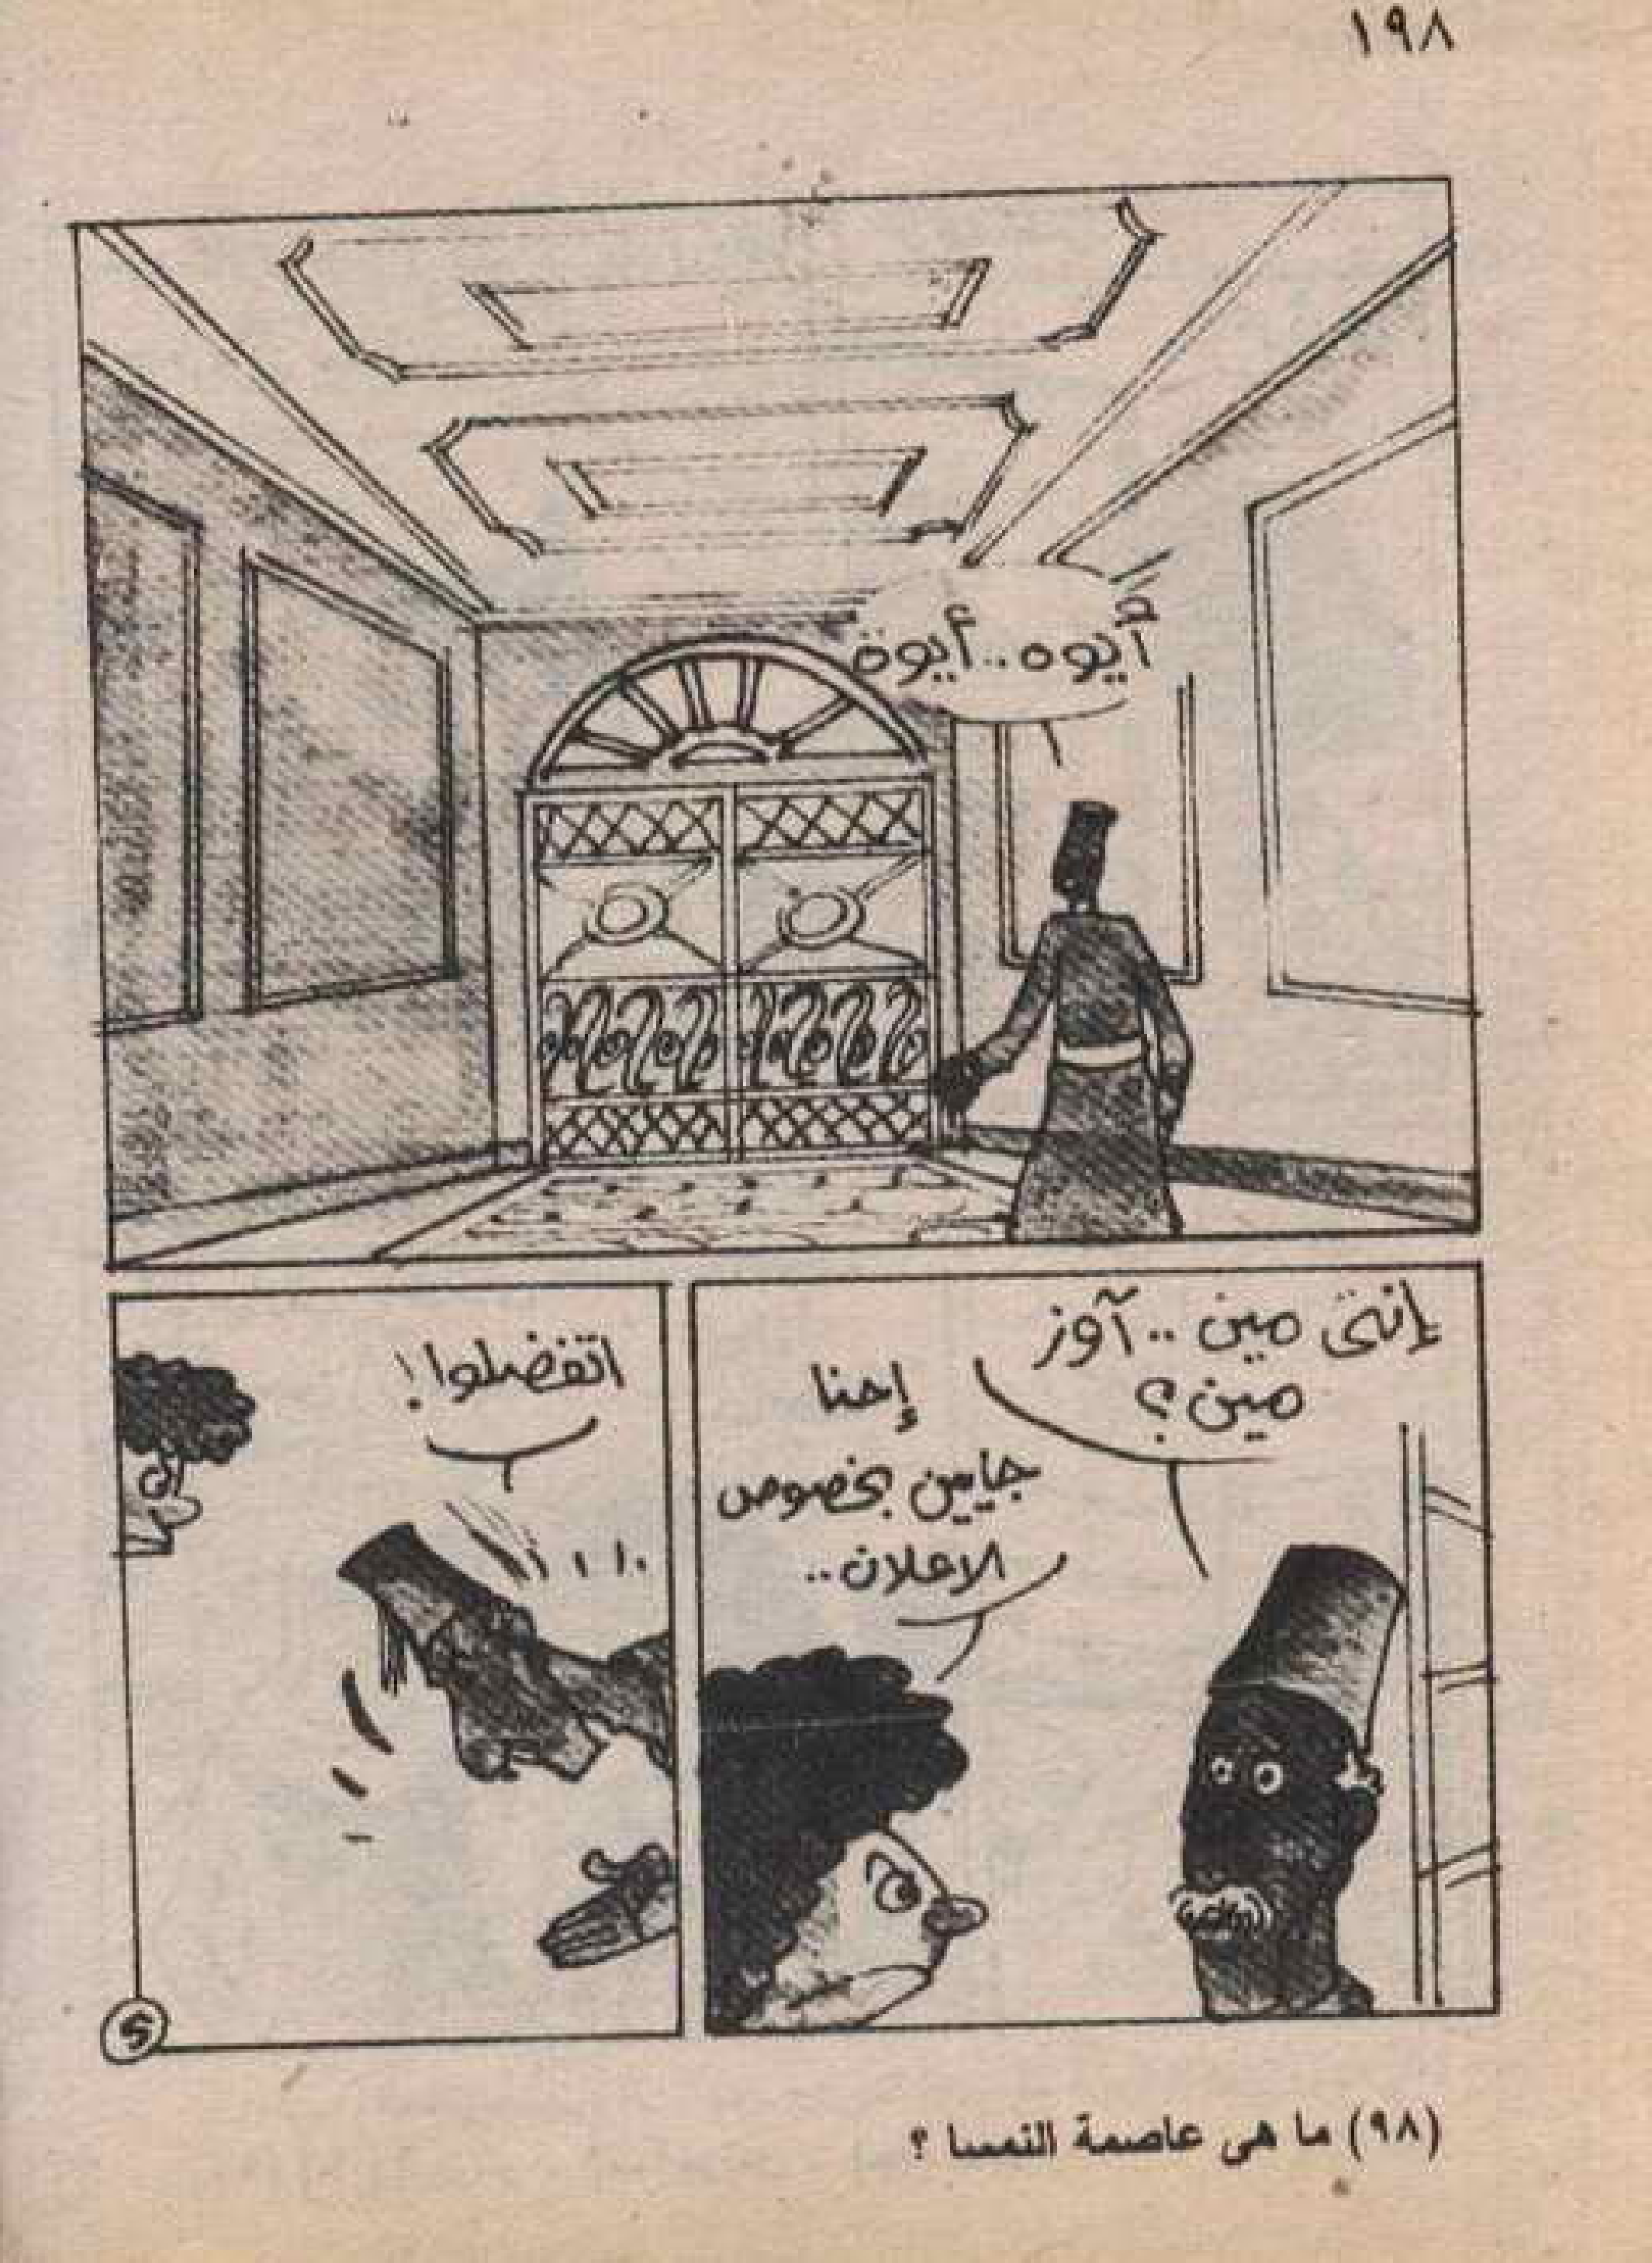 ١٩٨
أيوه..أيوة
إنتى مين..آوز
مين؟
إحنا
جايين بخصوص
الاعلان..
اتفضلوا!
(٩٨) ما هى عاصمة النمسا ؟